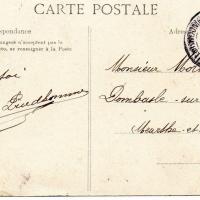 CARTE POSTALE
spondance
Adres
changent n'acceptent pas la
se renseigner à la Poste
Prudhomme
Monsieur Mo
Dombasle-sur
Meurthe-et-